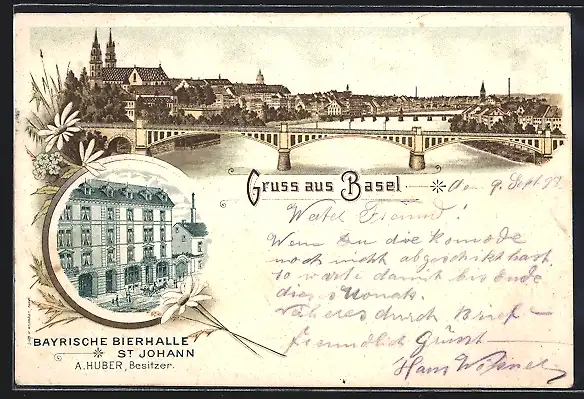 Gruss aus Basel
den 9. Sept. 97
Wertes Freund!
Wenn Du die Komode
noch nicht abgeschickt hast
so warte damit bis Ende
dieses Monats.
Näheres durch Brief
freundlich Grüsst
Hans
BAYRISCHE BIERHALLE
ST JOHANN
A. HUBER, Besitzer.